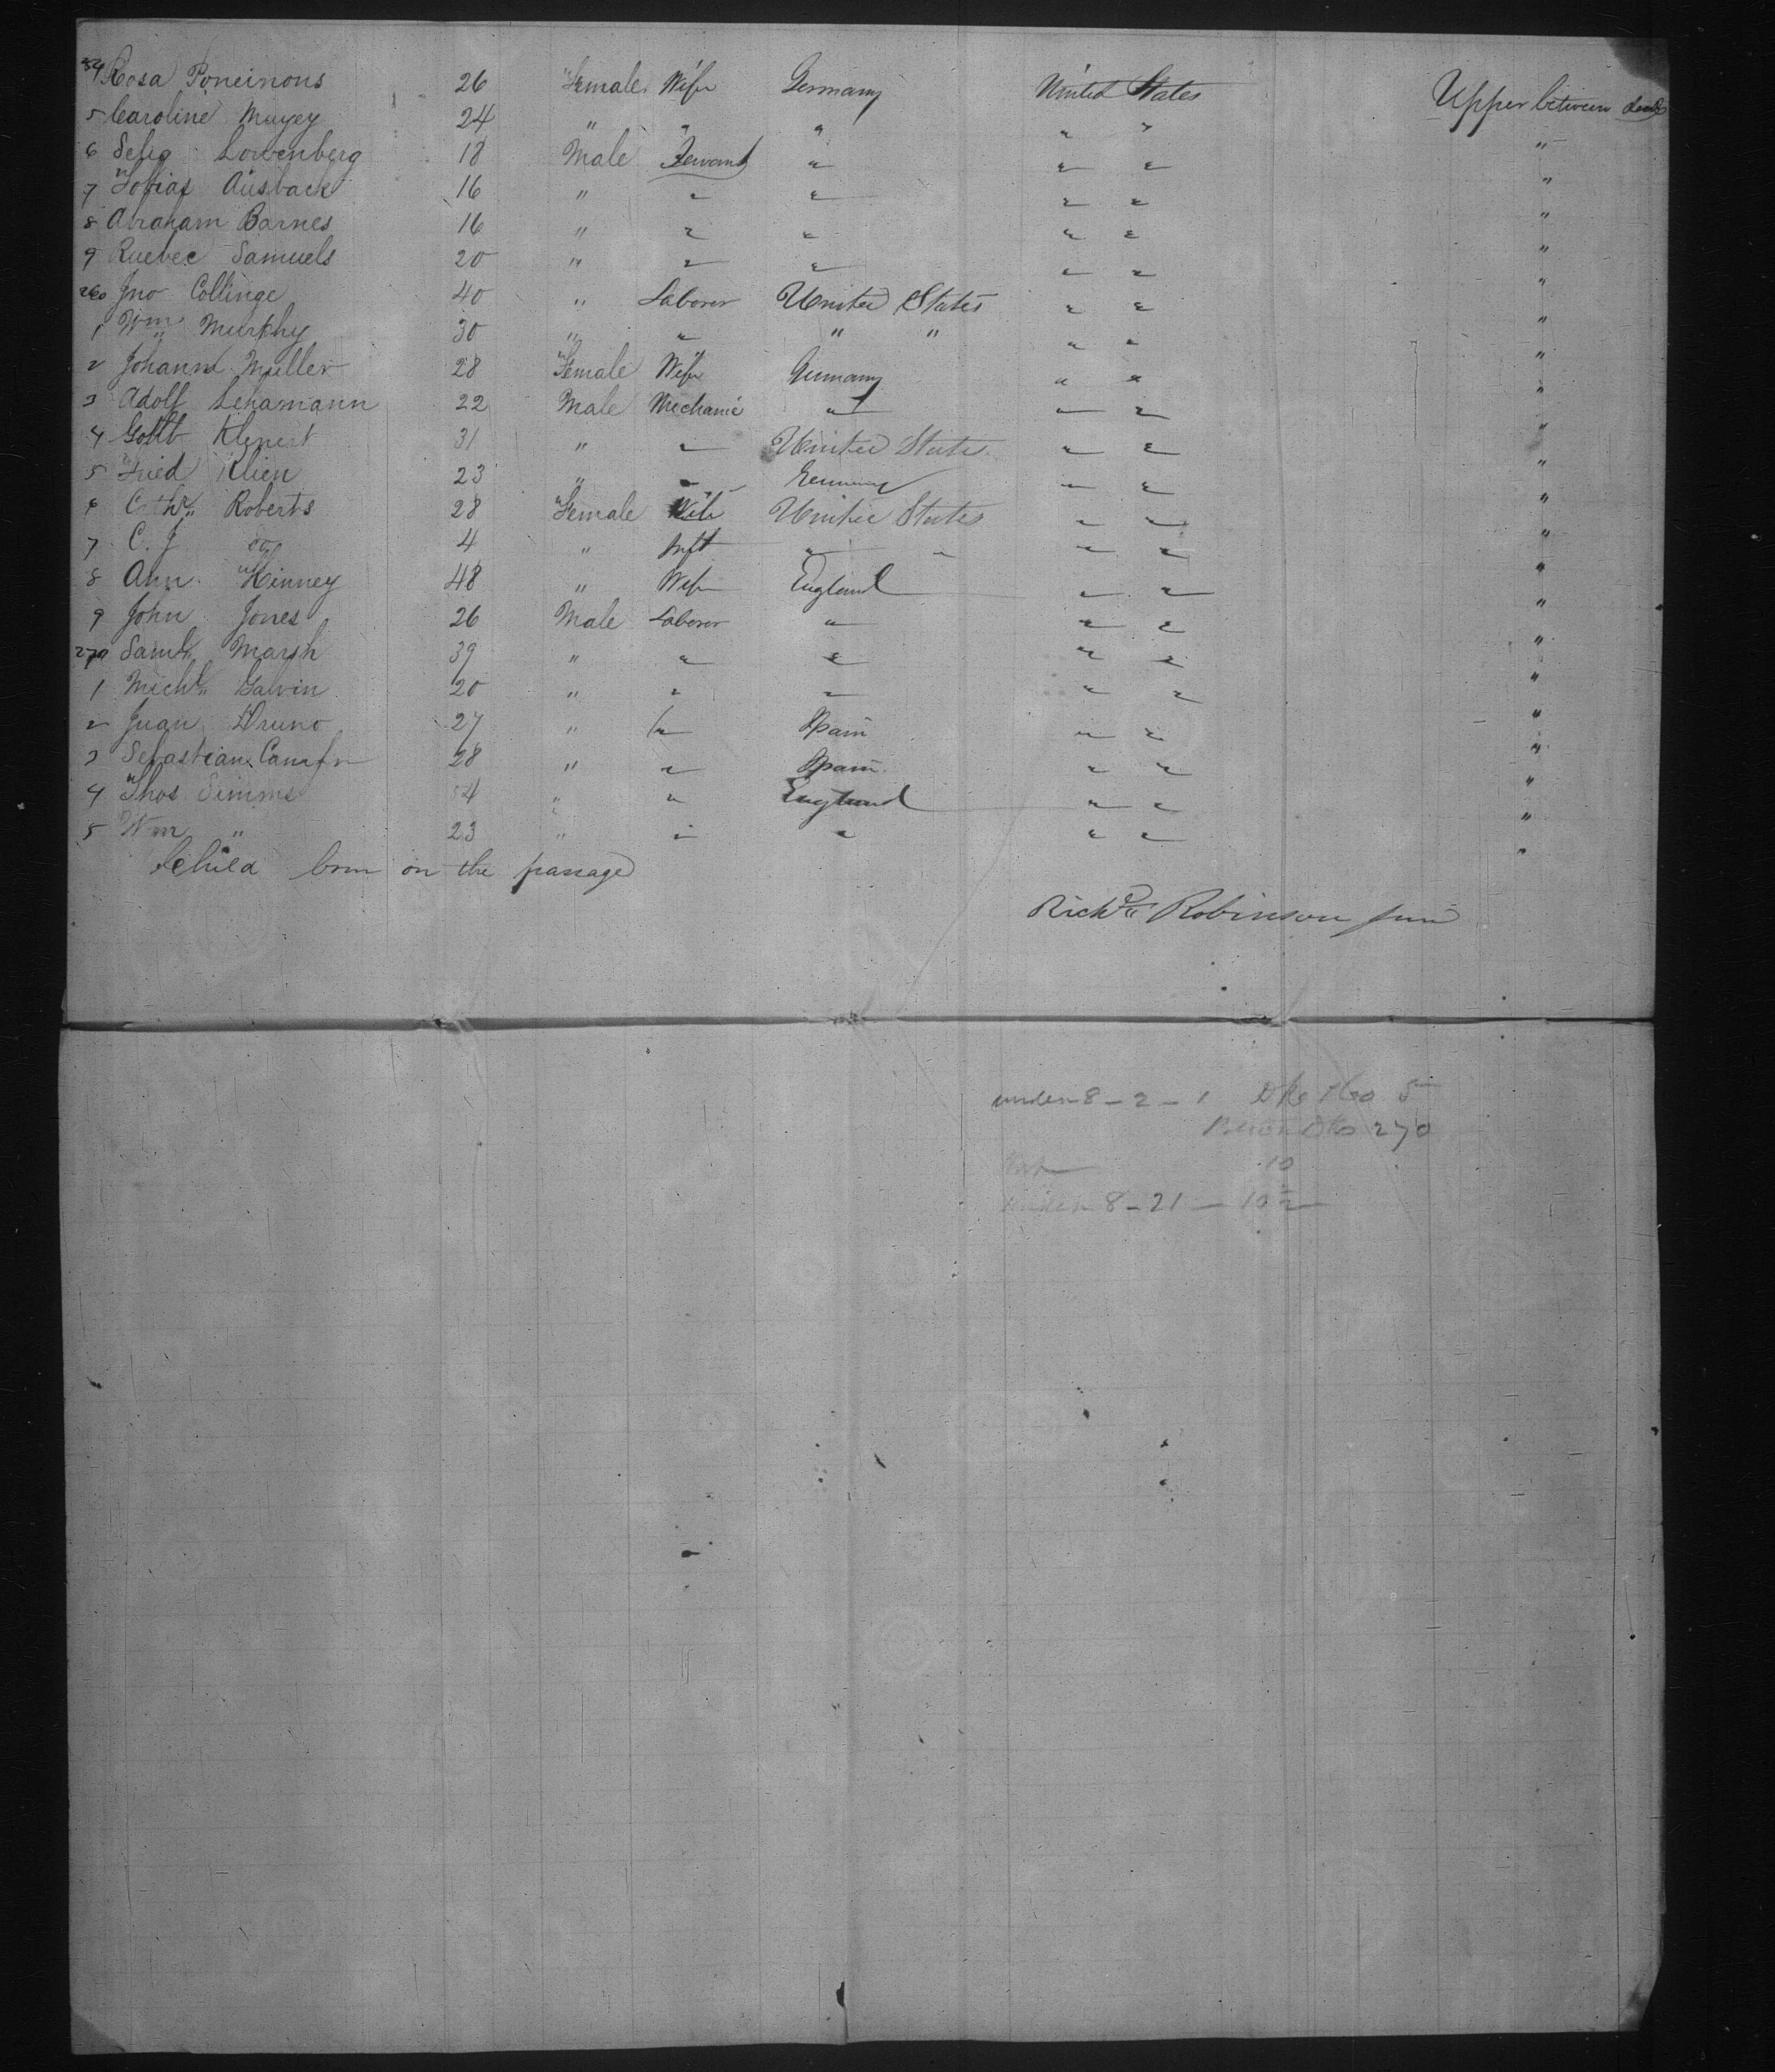 54 Rosa Poneinous 26 Female Wife Germany United States Upper between decks
5 Caroline Mayey 24 " " " " " "
6 Selig Lowenberg 18 Male Servant " " " "
7 Tobias Ausback 16 " " " " " "
8 Abraham Barnes 16 " " " " " "
9 Ruebec Samuels 20 " " " " " "
260 Jno Collinge 40 " Laborer United States " " "
1 Wm Murphy 30 " " " " " " "
2 Johanna Muller 28 Female Wife Germany " " "
3 Adolf Lehamann 22 Male Mechanic " " " "
4 Gottb Klenert 31 " " United States " " "
5 Fried Klien 23 " " Germany " " "
6 Cathr Roberts 28 Female Wife United States " " "
7 C. J do 4 " Inft " " " " "
8 Ann Kinney 48 " Wife England " " "
9 John Jones 26 Male Laborer " " " "
270 Saml Marsh 39 " " " " " "
1 Michl Galvin 20 " " " " " "
2 Juan Bruno 27 " " Spain " " "
3 Sebastian 28 " " Spain " " "
4 Thos Simms " " England " " "
5 Wm " 23 " " " " " "
1 Child born on the passage
Richd Robinson junr
under 8 - 2 - 1 5
270
10
under 8 - 21 - 10